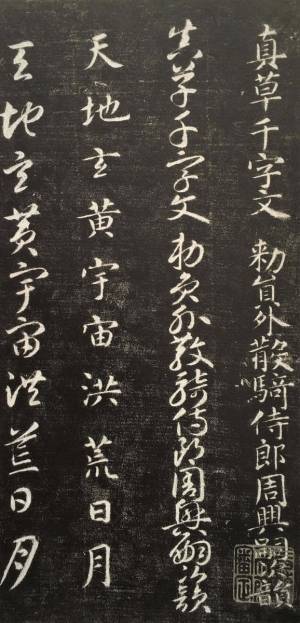 真草千字文 勅員外散騎侍郎周興嗣次韻
真草千字文勅員外散騎侍郎周興嗣次韻
天地玄黄宇宙洪荒日月
天地玄黄宇宙洪荒日月